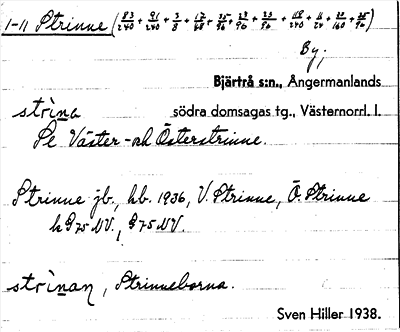 1-11 Strinne (83/240 + 91/240 + 3/8 + 17/48 + 35/96 + 23/96 + 23/96 + 118/240 + 11/24 + 22/160 + 35/96)
By;
Bjärtrå s:n., Ångermanlands
strina södra domsagas tg., Västernorrl. l.
Se Väster- och Österstrinne.
Strinne jb., hb. 1936, V. Strinne, Ö. Strinne
h G 75 NV., G 75 NV.
strinan, Strinneborna.
Sven Hiller 1938.